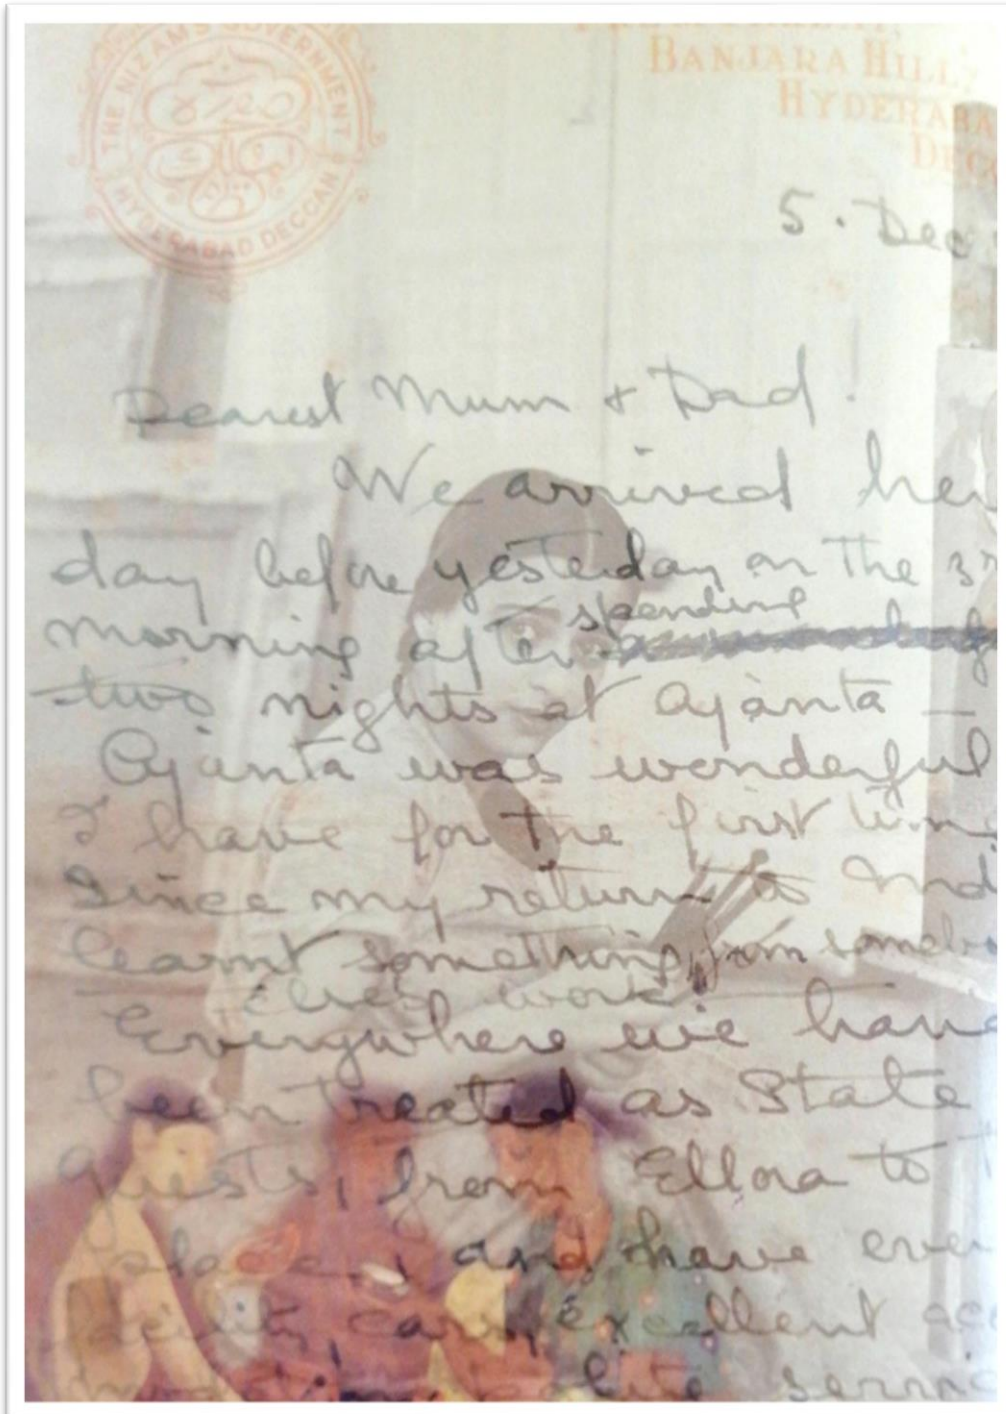 THE NIZAM'S GOVERNMENT
HYDERABAD DECCAN
BANJARA HILL
HYDERABA
DECC
5. Dec
Dearest Mum & Dad!
We arrived her
day before yesterday on the 3r
morning after spending
two nights at Ajanta –
Ajanta was wonderful
I have for the first time
Since my return to Indi
learnt something from somebo
else's work!
Everywhere we have
been treated as State
guests, from Ellora to
and have ever
excellent acc
servic